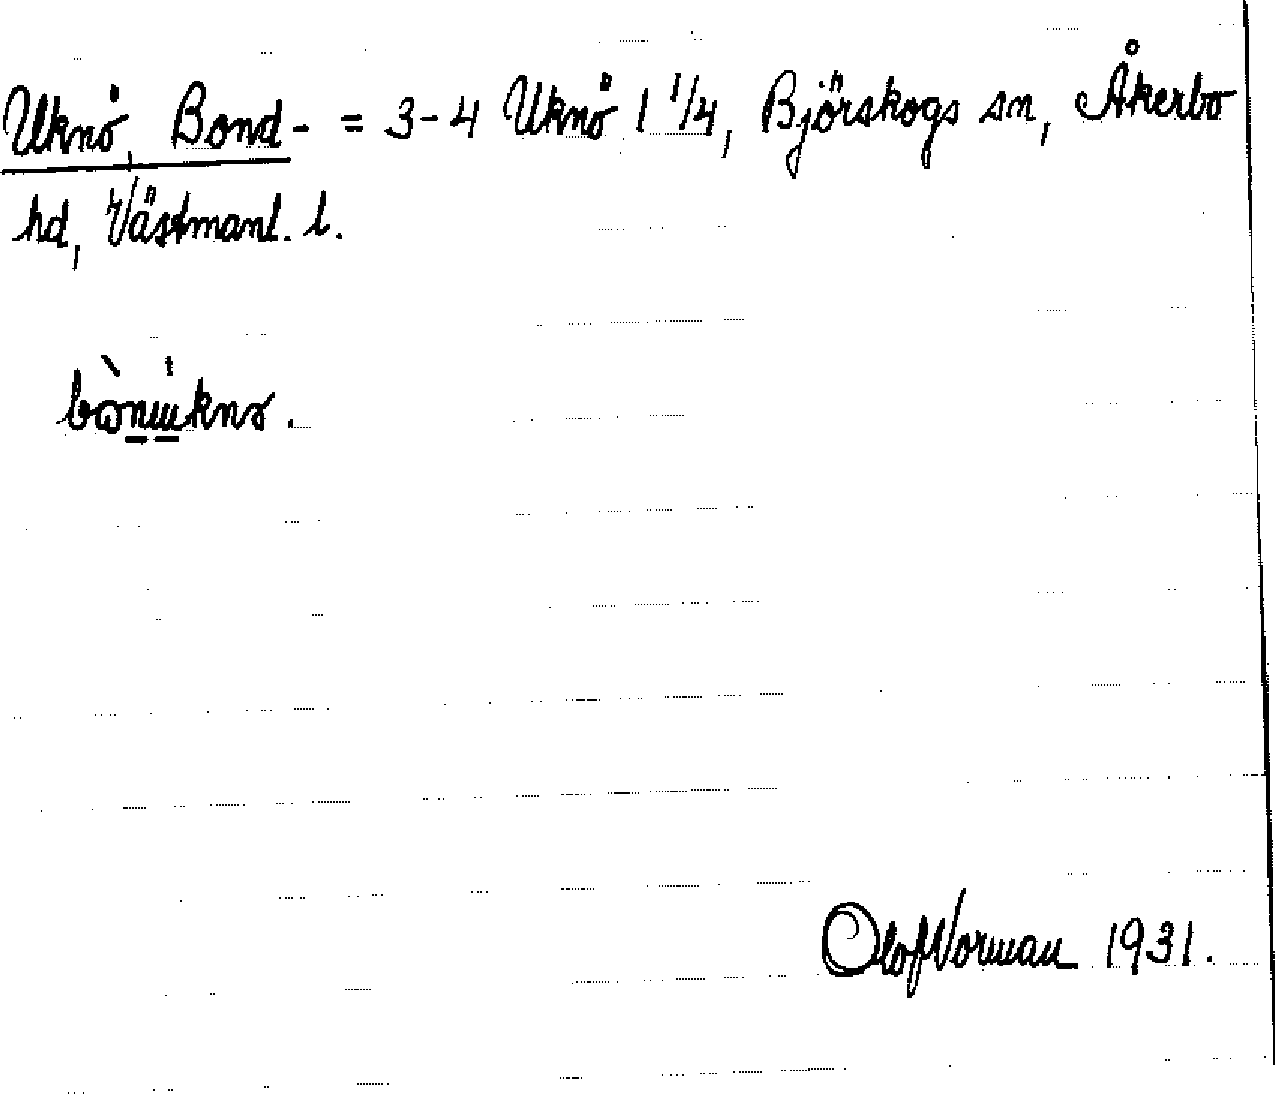 Uknö, Bond- = 3-4 Uknö 1 1/4, Björskogs sn, Åkerbo
hd, Västmanl. l.
Olof Norman 1931.